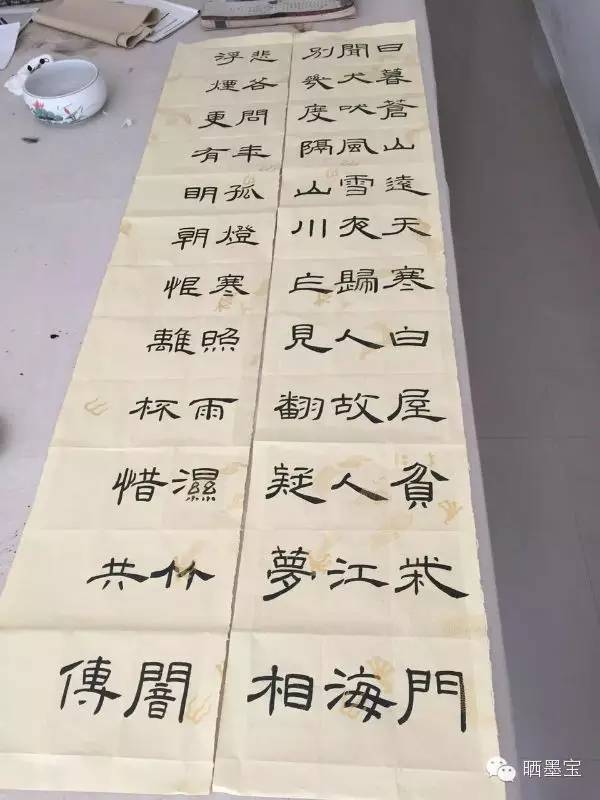 日暮蒼山遠天寒白屋貧柴門
聞犬吠風雪夜歸人故人江海
別幾度隔山川乍見翻疑夢相
悲各問年孤燈寒照雨濕竹闇
浮煙更有明朝恨離杯惜共傳
晒墨宝